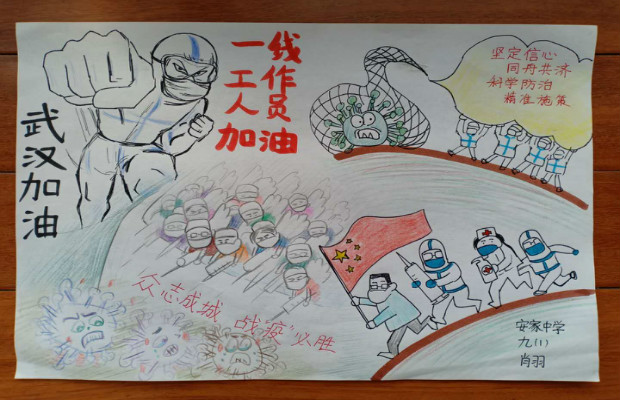 武汉加油
一线
工作
人员
加油
坚定信心
同舟共济
科学防治
精准施策
众志成城 战"疫"必胜
安家中学
九(1)
肖羽